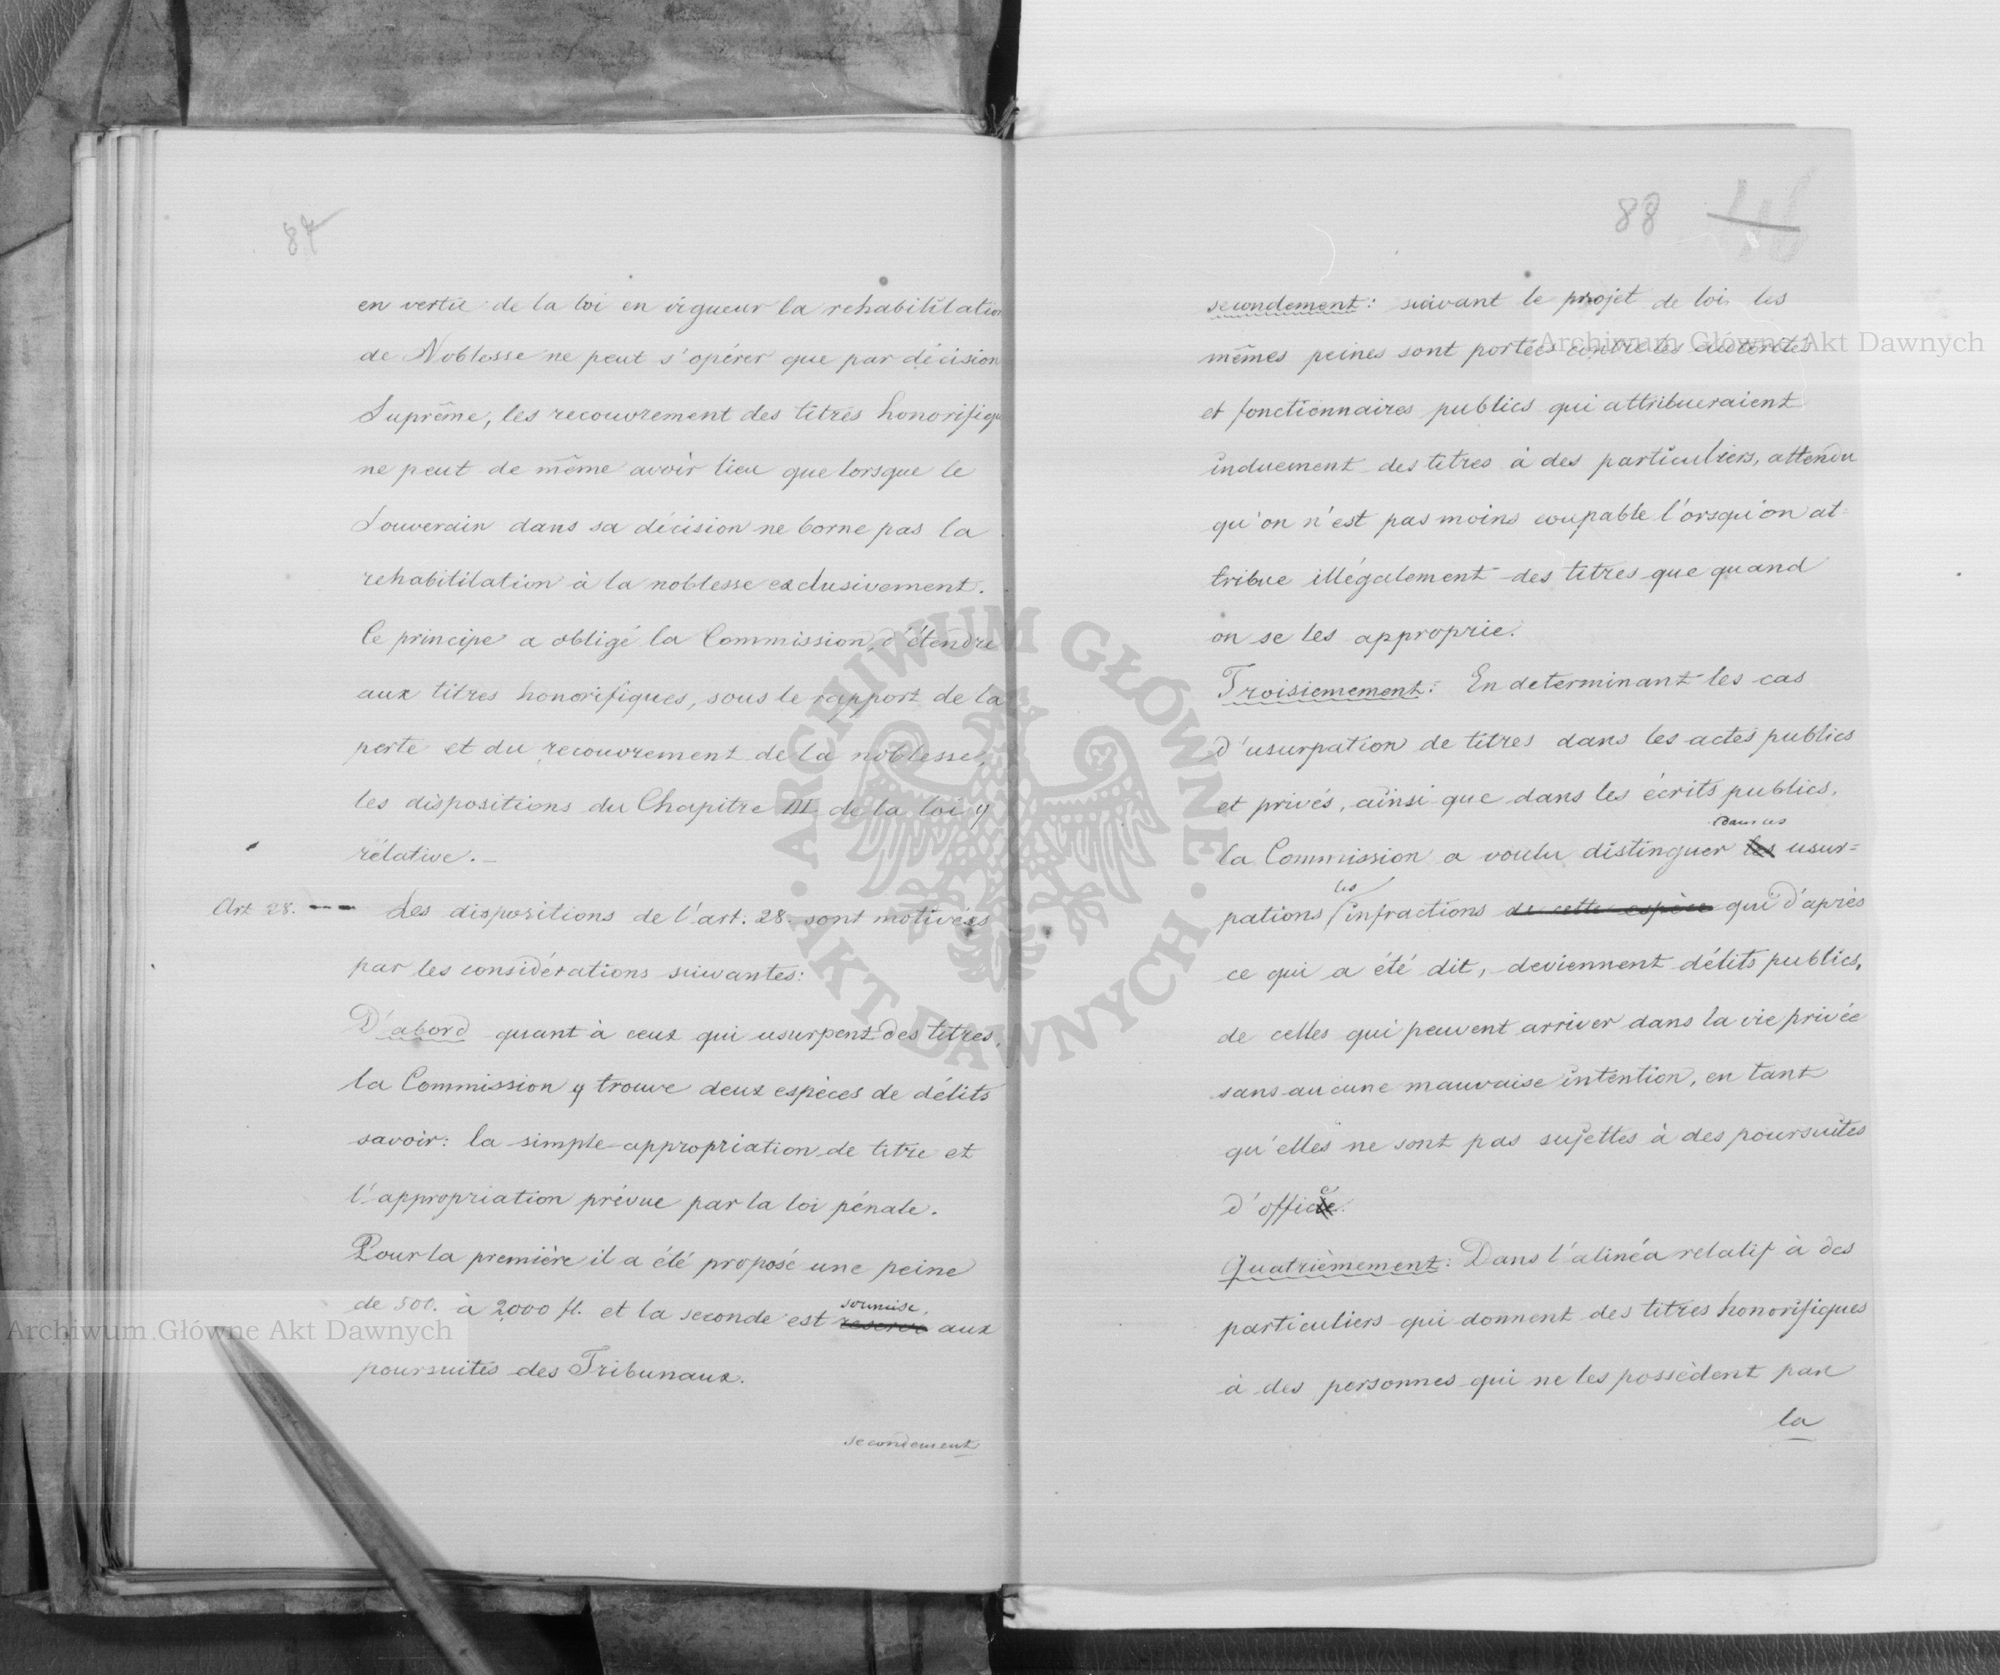 87
en vertu de la loi en vigueur la rehabilitation
de Noblesse ne peut s'opérer que par décision
Suprême, les recouvrement des titres honorifiqu
ne peut de même avoir lieu que lorsque le
Souverain dans sa décision ne borne pas la
rehabilitation à la noblesse exclusivement.
Ce principe a obligé la Commission, d'étendre
aux titres honorifiques, sous le rapport de la
perte et du recouvrement de la noblesse,
les dispositions du Chapitre III de la loi y
rélative.
Art 28. Les dispositions de l'art. 28. sont motivées
par les considérations suivantes:
D'abord quant à ceux qui usurpent des titres,
la Commission y trouve deux espèces de délits
savoir: la simple appropriation de titre et
l'appropriation prévue par la loi pénale.
Pour la première il a été proposé une peine
de 500. à 2000 fl. et la seconde est reservé soumise aux
poursuites des Tribunaux.
secondement
88
secondement: suivant le projet de loi les
mêmes peines sont portées contre les autorités
et fonctionnaires publics qui attribueraient
induement des titres à des particuliers, attendu
qu'on n'est pas moins coupable l'orsqu'on at=
tribue illégalement des titres que quand
on se les approprie.
Troisiemement: En determinant les cas
d'usurpation de titres dans les actes publics
et privés, ainsi que dans les écrits publics,
la Commission a voulu distinguer les dans ces usur=
pations les infractions de cette espèce qui d'après
ce qui a été dit, deviennent délits publics,
de celles qui peuvent arriver dans la vie privée
sans aucune mauvaise intention, en tant
qu'elles ne sont pas sujettes à des poursuites
d'office.
Quatrièmement: Dans l'alinéa relatif à des
particuliers qui donnent des titres honorifiques
à des personnes qui ne les possèdent par
la
Archiwum Główne Akt Dawnych
Archiwum Główne Akt Dawnych
ARCHIWUM GŁÓWNE · AKT DAWNYCH ·